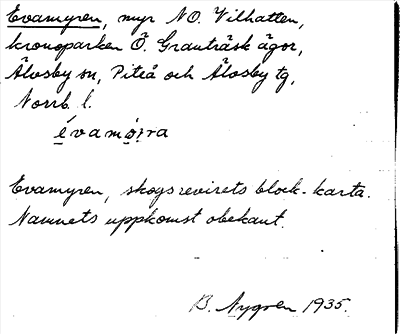 Evamyren, myr NO. Vilhatten,
kronoparken Ö. Granträsk ägor,
Älvsby sn, Piteå och Älvsby tg,
Norrb. l.
évamỳra
Evamyren, skogsrevirets block-karta.
Namnets uppkomst obekant.
B. Nygren 1935.